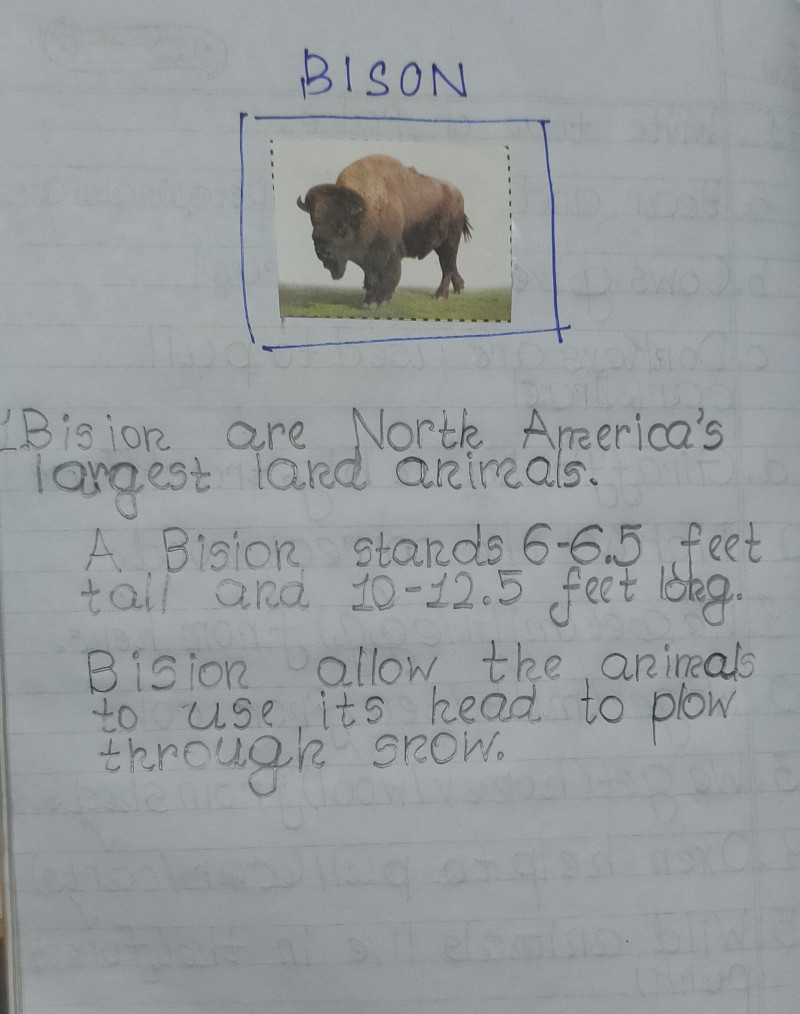 BISON
Bision are North America's
largest land animals.
A Bision stands 6-6.5 feet
tall and 10-12.5 feet long.
Bision allow the animals
to use its head to plow
through snow.